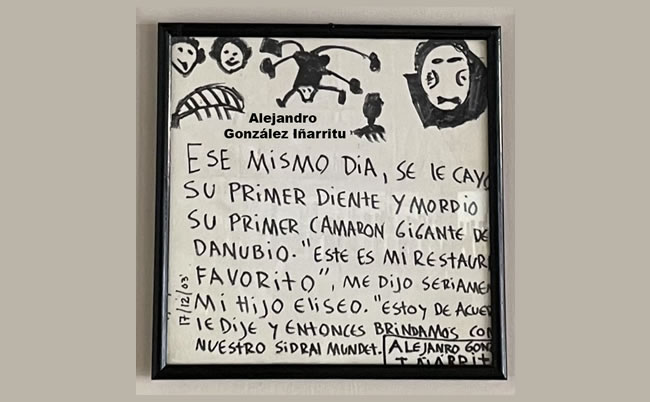 Alejandro
González Iñarritu
ESE MISMO DIA, SE LE CAYO
SU PRIMER DIENTE Y MORDIO
SU PRIMER CAMARON GIGANTE DE
DANUBIO. "ESTE ES MI RESTAUR
FAVORITO", ME DIJO SERIAME
MI HIJO ELISEO. "ESTOY DE ACUE
LE DIJE Y ENTONCES BRINDAMOS CON
NUESTRO SIDRAL MUNDET.
ALEJANRO GON
IÑARRIT
17/12/03